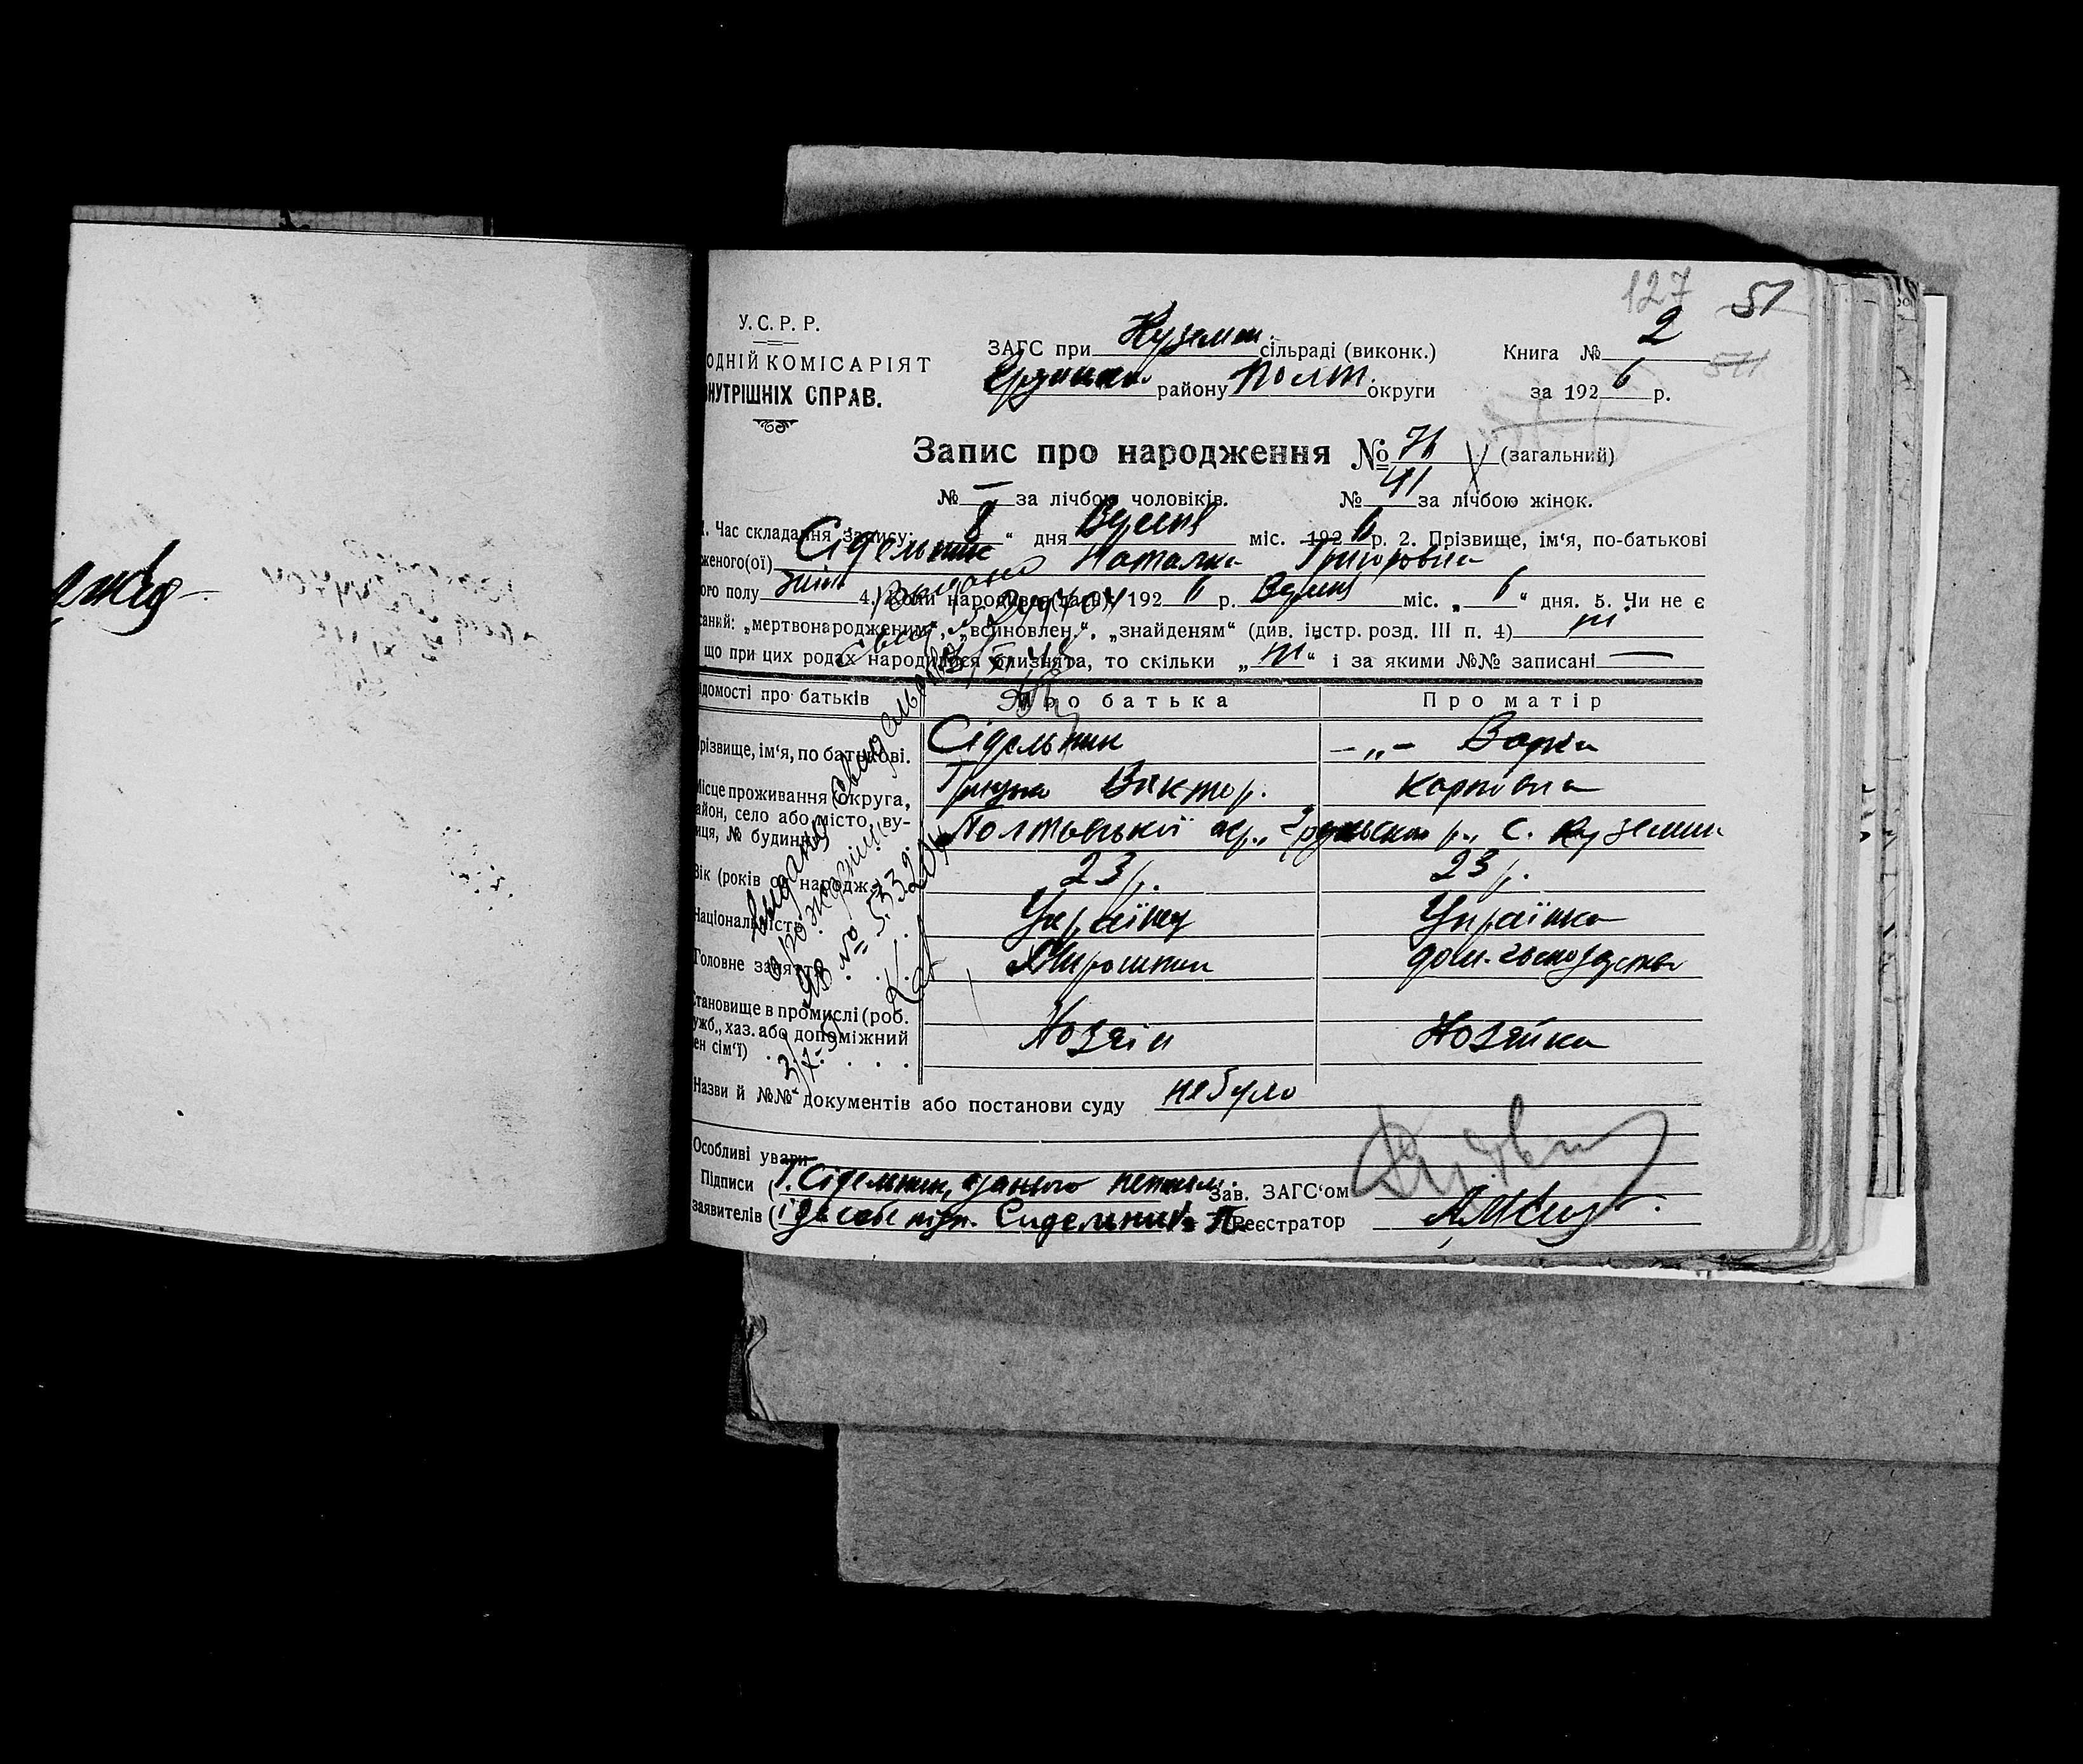 127 51
У.С.Р.Р.
ОДНІЙ КОМІСАРІЯТ
НУТРІШНІХ СПРАВ.
ЗАГС при Куземин. сільраді (виконк.)
району Полт. округи
Книга № 2
511
за 1926 р.
Запис про народження № 71 (загальний)
№ — за лічбою чоловіків. № 41 за лічбою жінок.
1. Час складання запису: 8 “ дня Вересня міс. 1926 р. 2. Прізвище, ім‘я, по-батькові
женого(ої) Сідельник Наталка Григоровна
ого полу жін 4. Коли народився(лась): 1926 р. Вересня міс. „ 6 “ дня. 5. Чи не є
саний: „мертвонародженим“, „всиновлен.“, „знайденям“ (див. інстр. розд. III п. 4) ні
що при цих родах народилося близнята, то скільки „ ні “ і за якими №№ записані —
ідомості про батьків Про батька Про матір
різвище, ім‘я, по батькові. Сідельник —„— Варка
Грицько Віктор. Карпівна
Місце проживання (округа, район, село або місто, ву-
лиця, № будинку Полтавської окр., р., с. Куземин
Вік (років од народж.) 23 р. 23 р.
Національність Українец Українка
Головне заняття Мірошник дом. господарства
Становище в промислі (роб.
ужб., хаз. або допоміжний
ен сім‘ї) . . . . Хозяін Хозяйка
Назви й №№ документів або постанови суду не було
Особливі уваги
Підписи (Г. Сідельник, а за нього непись.
заявителів (і за себе підп. Сидельник П.
Зав. ЗАГС‘ом
Реєстратор
Выдано свидетельство
о рождении
№ 5339